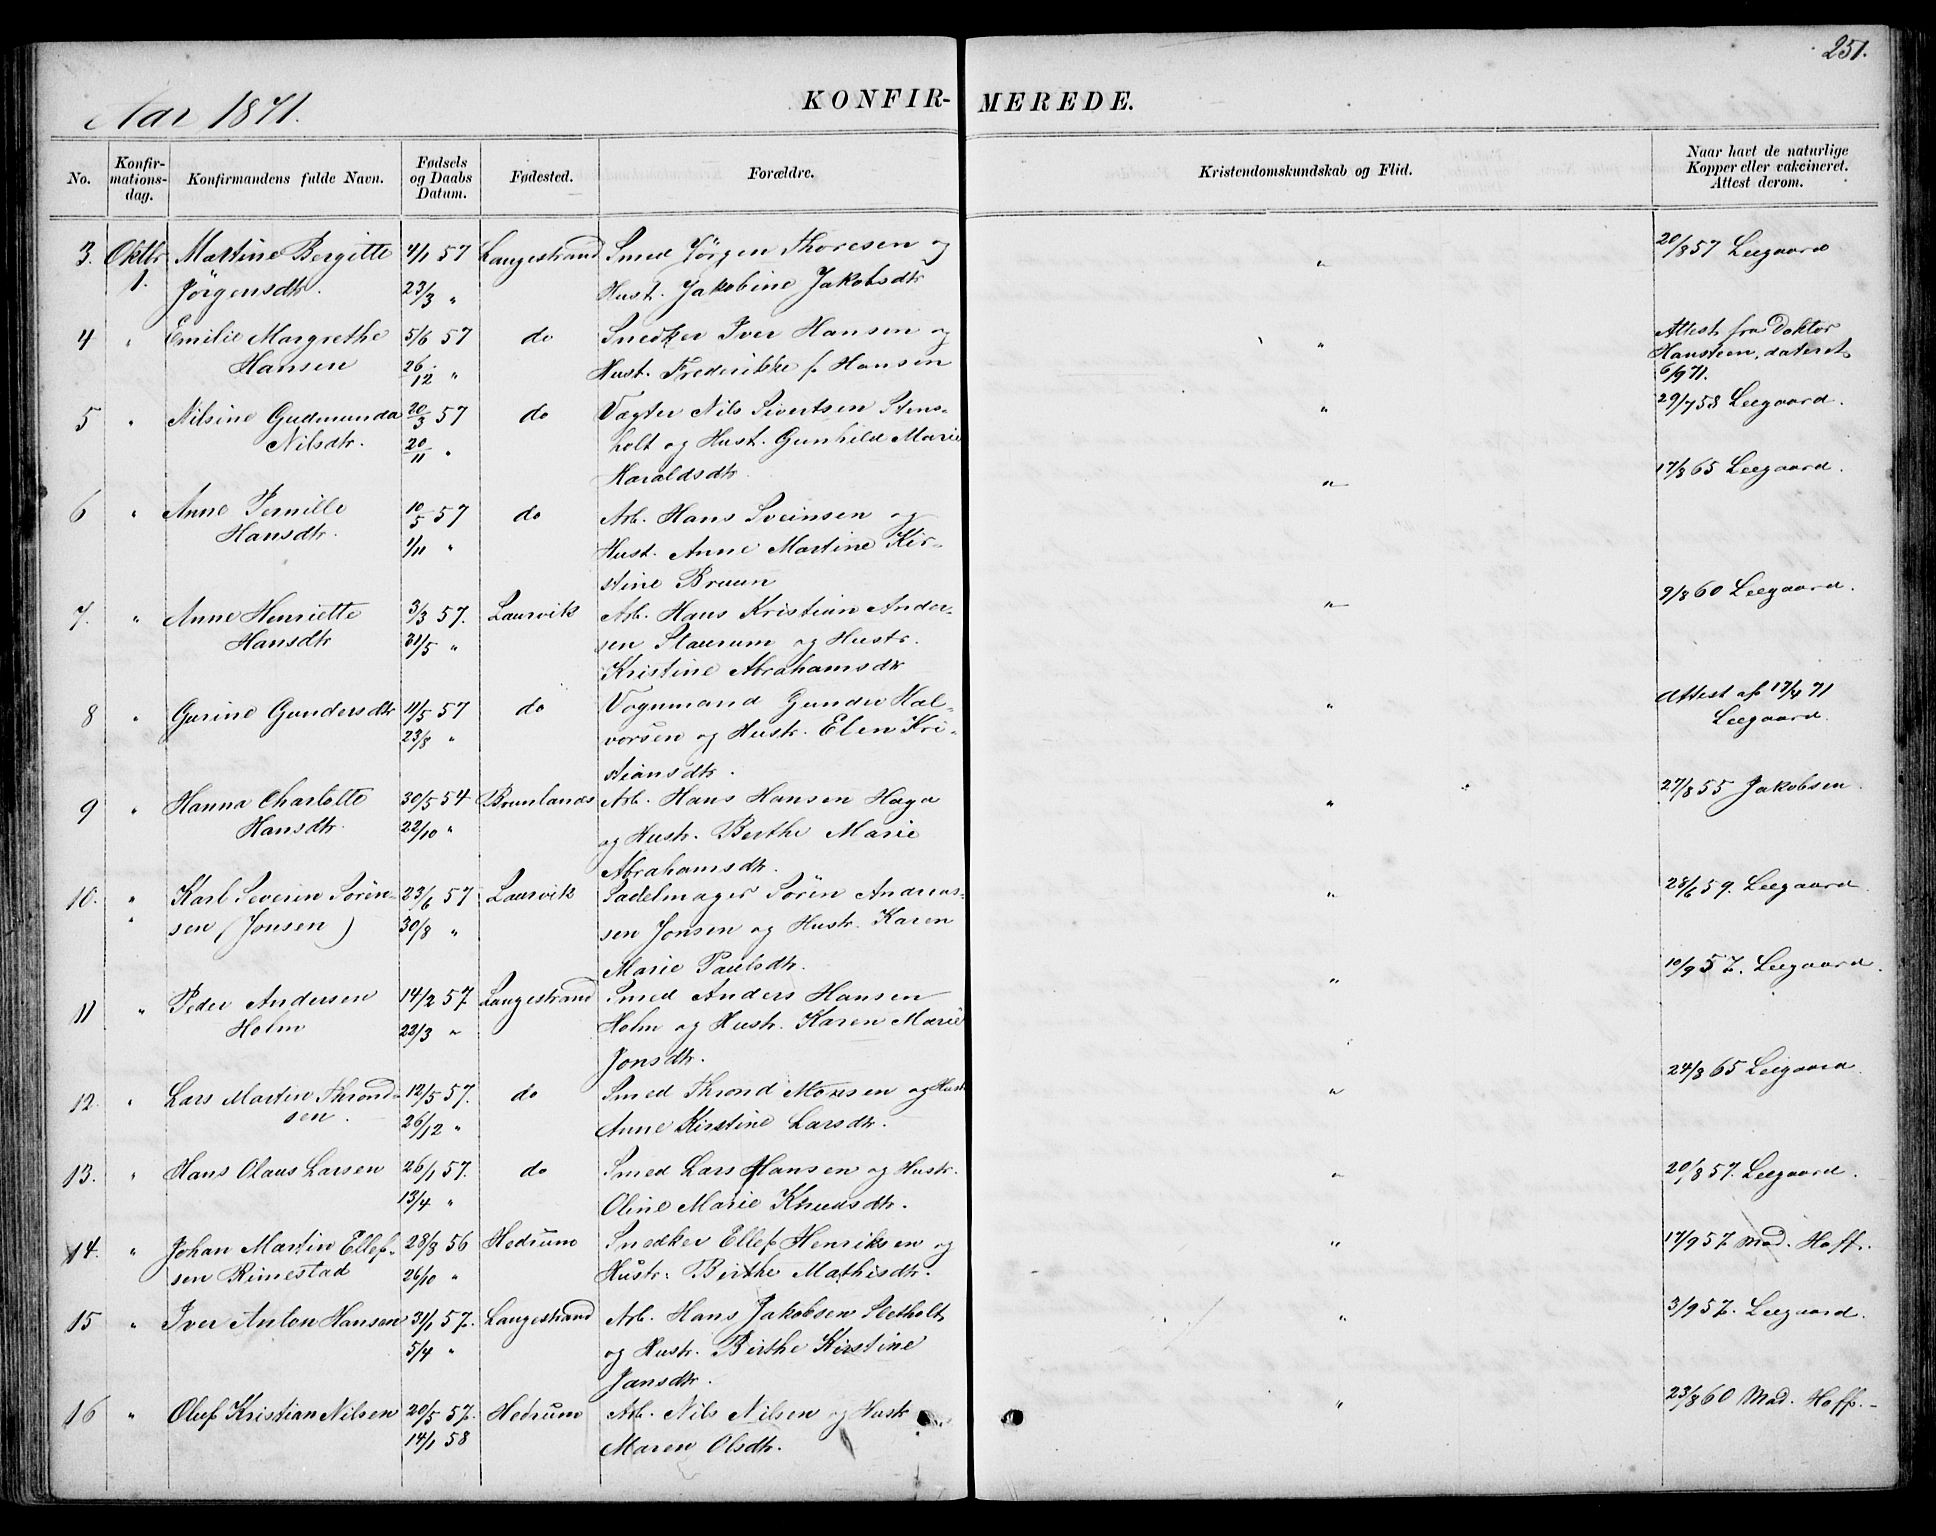 251.
Aar 1871.
KONFIR- MEREDE.
No.
Konfir-
mations-
dag.
Konfirmandens fulde Navn.
Fødsels
og Daabs
Datum.
Fødested.
Forældre.
Kristendomskundskab og Flid.
Naar havt de naturlige
Kopper eller vakcineret.
Attest derom.
3. Oktbr Martine Bergitte 4/1 57 Langestrand Smed Jörgen Thoresen og " 20/8 57 Leegaard
1. Jörgensdtr. 23/3 " Hust. Jakobine Jakobsdtr
4 " Emilie Margrethe 5/6 57 do Snedker Iver Hansen og " Attest fra Doktor
Hansen 26/12 " Hust. Frederikke f. Hansen Hansteen, dateret
6/9 71.
5 " Nilsine Gudmunda 20/3 57 do Vagter Nils Sivertsen Stens- " 29/7 58 Leegaard.
Nilsdtr. 20/11 " holt og Hust. Gunhild Marie
Haraldsdtr.
6 " Anne Pernille 10/5 57 do Arb. Hans Sveinsen og " 17/8 65 Leegaard.
Hansdtr. 1/11 " Hust. Anne Martine Kir-
stine Bruun
7. " Anne Henriette 3/3 57. Laurvik Arb. Hans Kristian Ander- " 9/8 60 Leegaard.
Hansdtr 31/5 " sen Staurum og Hustr.
Kristine Abrahamsdtr
8 " Gurine Gundersdtr 11/5 57 do Vognmand Gunder Hal- " Attest af 17/4 71
23/8 " vorsen og Hustr. Elen Kri- Leegaard.
stiansdtr.
9 " Hanna Charlotte 30/5 54 Brunlanæs Arb. Hans Hansen Haga " 27/8 55 Jakobsen.
Hansdtr. 22/10 " og Hustr. Berthe Marie
Abrahamsdtr.
10. " Karl Severin Sören- 23/6 57 Laurvik Sadelmager Sören Andreas- " 28/6 59. Leegaard.
" sen (Jonsen) 30/8 " sen Jonsen og Hustr. Karen
Marie Paulsdtr.
11 " Peder Andersen 14/2 57. Langestrand Smed Anders Hansen " 10/9 57. Leegaard.
Holm 22/3 " Holm og Hustr. Karen Marie
Jonsdtr.
12. " Lars Martin Thrond- 12/5 57. do Smed Thrond Monsen og Hust. " 24/8 65 Leegaard.
sen. 26/12 " Anne Kirstine Larsdtr.
13. " Hans Olaus Larsen 26/1 57. do Smed Lars Hansen og Hustr. " 20/8 57. Leegaard.
13/4 " Oline Marie Knudsdtr.
14. " Johan Martin Ellef- 28/8 56 Hedrum Snedker Ellef Henriksen og " 17/9 57. Mad. Hoff.
sen Rimestad 26/10 " Hustr. Birthe Mathisdtr.
15 " Iver Anton Hansen 31/1 57. Langestrand Arb. Hans Jakobsen Sletholt " 3/9 57. Leegaard.
5/4 " og Hustr. Birthe Kirstine
Jansdtr.
16 " Oluf Kristian Nilsen 20/5 57. Hedrum Arb. Nils Nilsen og Hustr " 23/8 60 Mad. Hoff.
14/1 58 Maren Olsdtr.